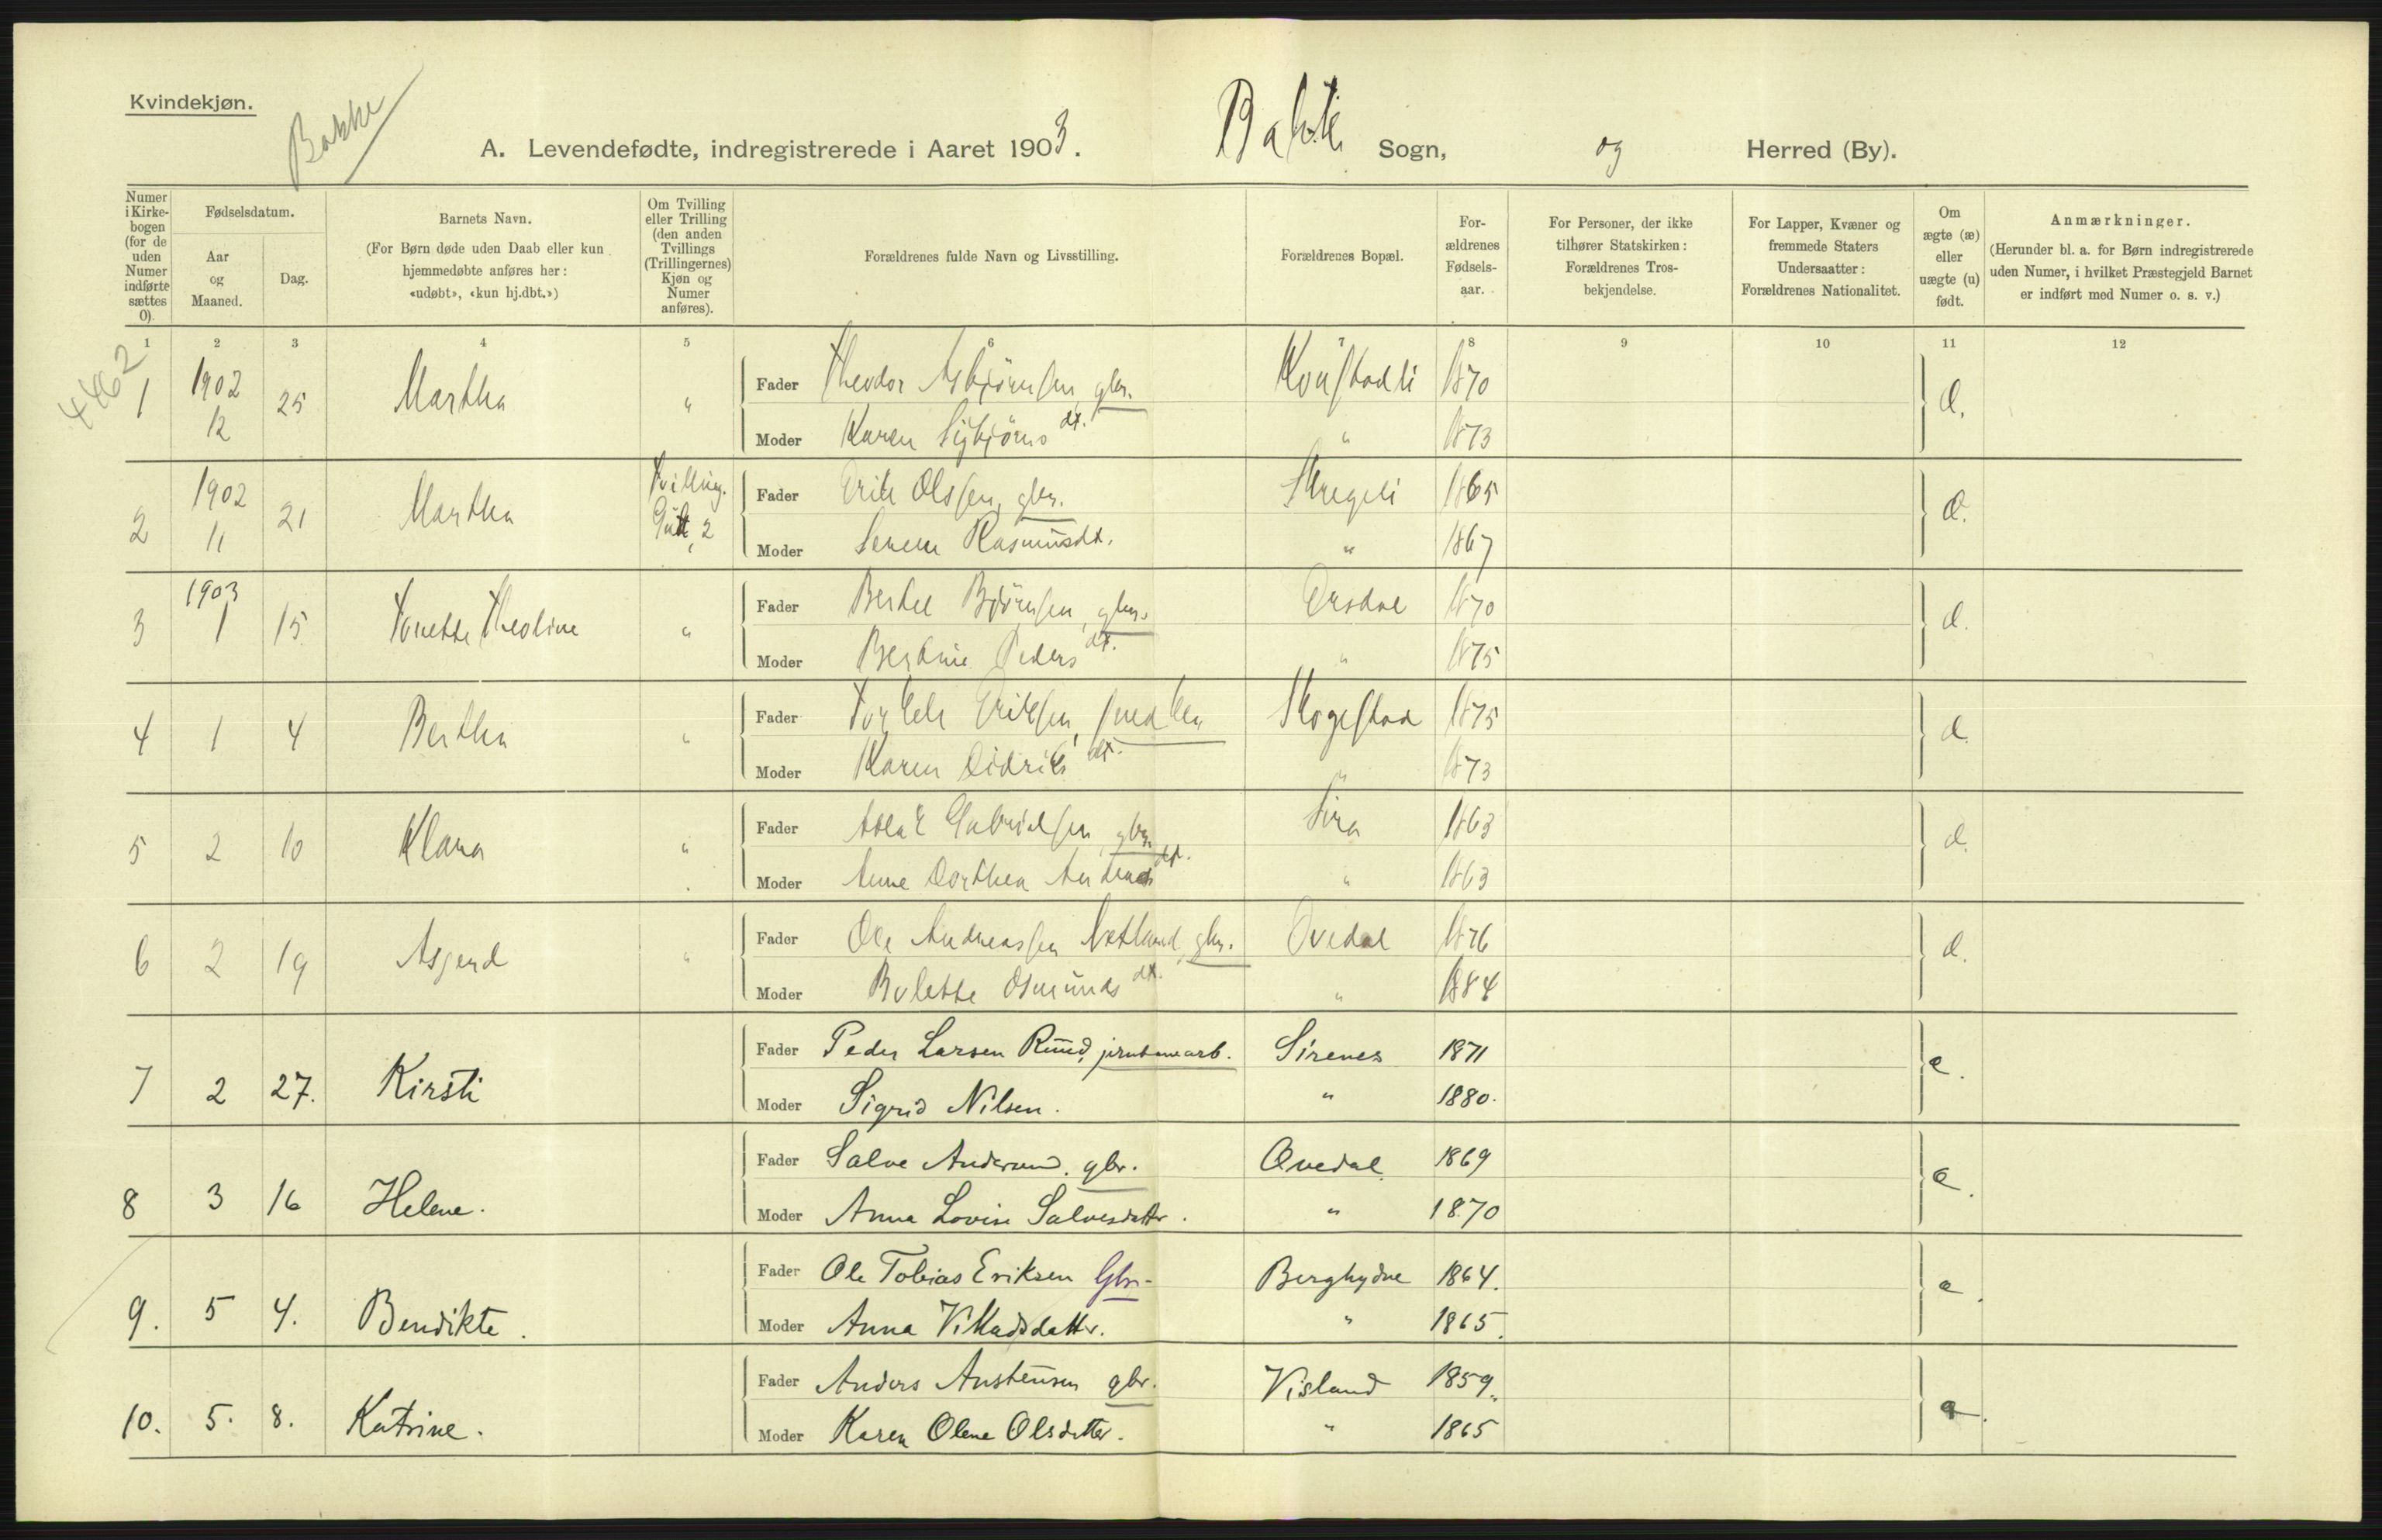 Kvindekjøn.
Bakke
A. Levendefødte, indregistrerede i Aaret 1903. Bakke Sogn, og Herred (By).
Numer i Kirke-bogen (for de uden Numer indførte sættes 0).
Fødselsdatum.
Aar og Maaned.
Dag.
Barnets Navn.
(For Børn døde uden Daab eller kun hjemmedøbte anføres her: «udøbt», «kun hj.dbt.»)
Om Tvilling eller Trilling (den anden Tvillings (Trillingernes) Kjøn og Numer anføres).
Forældrenes fulde Navn og Livsstilling.
Forældrenes Bopæl.
For-ældrenes Fødsels-aar.
For Personer, der ikke tilhører Statskirken: Forældrenes Tros-bekjendelse.
For Lapper, Kvæner og fremmede Staters Undersaatter: Forældrenes Nationalitet.
Om ægte (æ) eller uægte (u) født.
Anmærkninger.
(Herunder bl. a. for Børn indregistrerede uden Numer, i hvilket Præstegjeld Barnet er indført med Numer o. s. v.)
1 2 3 4 5 6 7 8 9 10 11 12
4462
1 1902 12 25 Martha " Fader Theodor Asbjörnsen, gbr. 1870 æ.
Moder Karen Sigbjörns dt. " 1873
2 1902 11 21 Martha Tvilling. Gut, 2 Fader Erik Olssen, gbr. Skregeli 1865 æ.
Moder Serene Rasmusdt. " 1867
3 1903 1 15 Tonette Theoline " Fader Bertel Björnsen, gbr. Ersdal 1870 æ.
Moder Bertine Peders dt. " 1875
4 1 4 Bertha " Fader Torkel Eriksen, snedker Skogestad 1875 æ.
Moder Karen Didriks dt. " 1873
5 2 10 Klara " Fader Aslak Gabrielsen, gbr. Sira 1863 æ.
Moder Anne Dorthea dt. " 1863
6 2 19 Asgerd " Fader Ole Andreassen Netland, gbr. Ovedal 1876 æ.
Moder Bolette Osmunds dt. " 1884
7 2 27. Kirsti Fader Peder Larsen Ruud, jernbanearb. Sirenes 1871 æ.
Moder Sigrid Nilsen. " 1880.
8 3 16 Helene. Fader Salve Andersen. gbr. Ovedal 1869 æ.
Moder Anna Lovise Salvesdatter. " 1870
9. 5 4. Bendikte. Fader Ole Tobias Eriksen Gbr. 1864. æ.
Moder Anna datter. " 1865.
10. 5. 8. Katrine. Fader Anders Austensen gbr. Visland 1859. æ.
Moder Karen Olene Olsdatter. " 1865